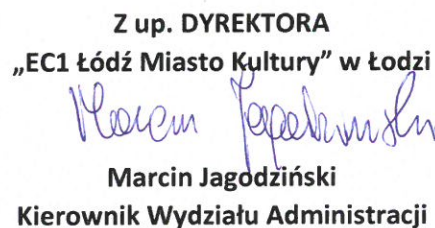 Z up. DYREKTORA
„EC1 Łódź Miasto Kultury” w Łodzi
Marcin Jagodziński
Marcin Jagodziński
Kierownik Wydziału Administracji